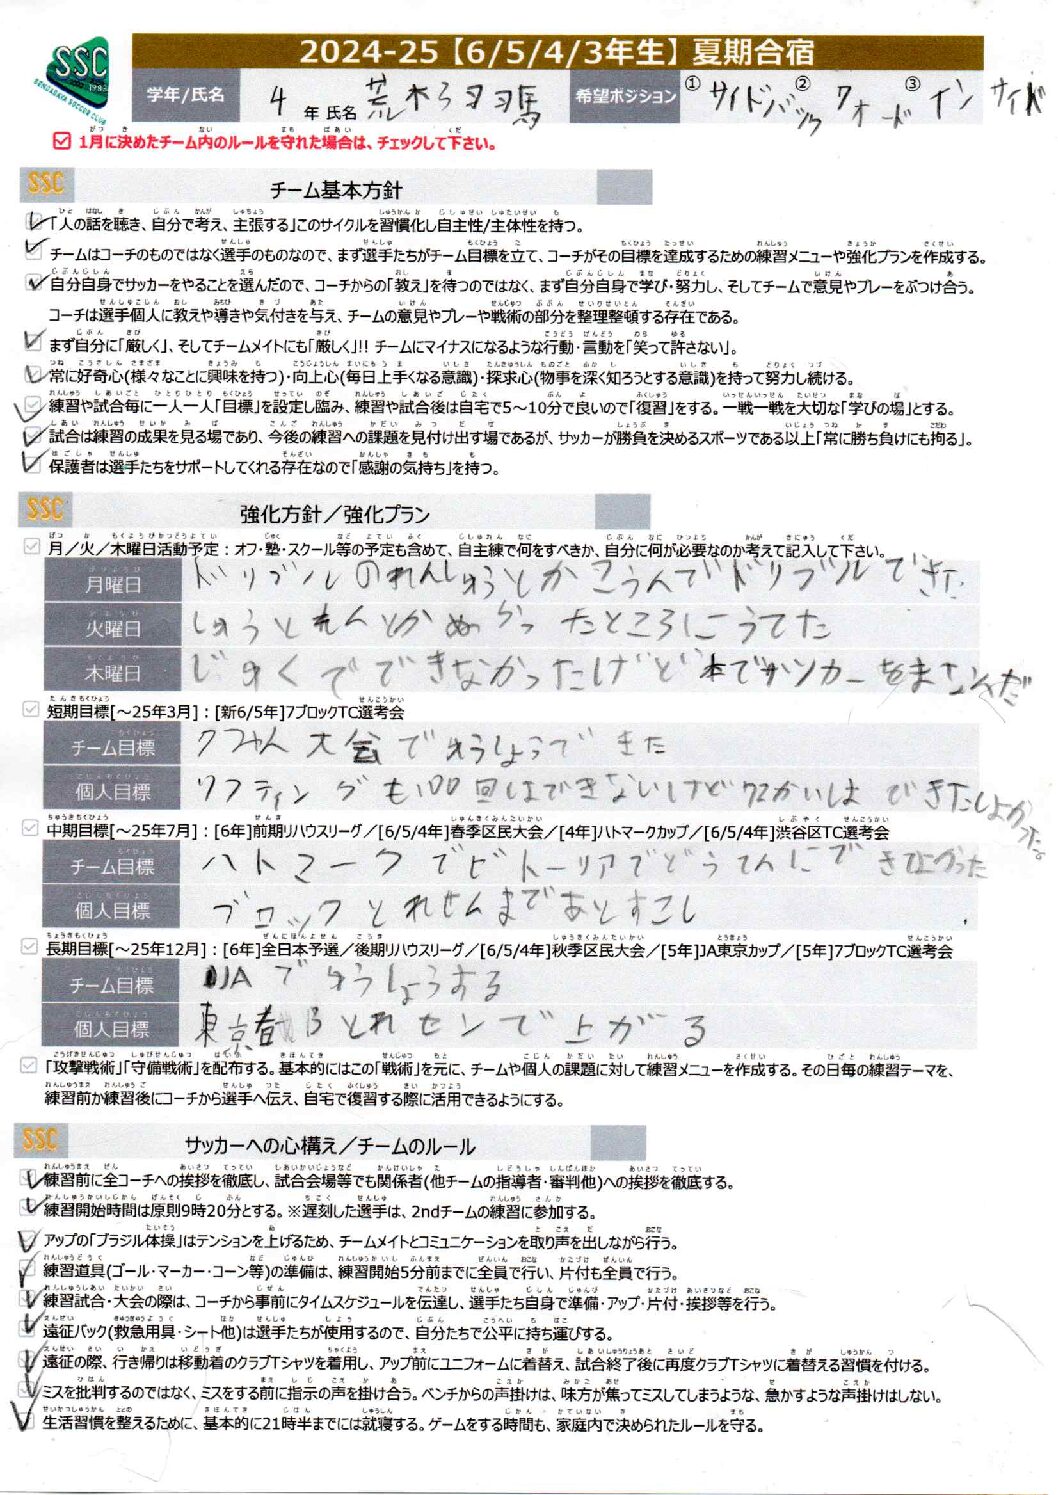 SSC
1983
SENDAGAYA SOCCER CLUB
2024-25【6/5/4/3年生】夏期合宿
学年/氏名 4 年 氏名 荒木 馬 希望ポジション ①サイドバック ②フォード ③インサイド
1月に決めたチーム内のルールを守れた場合は、チェックして下さい。
SSC チーム基本方針
「人の話を聴き、自分で考え、主張する」このサイクルを習慣化し自主性/主体性を持つ。
チームはコーチのものではなく選手のものなので、まず選手たちがチーム目標を立て、コーチがその目標を達成するための練習メニューや強化プランを作成する。
自分自身でサッカーをやることを選んだので、コーチからの「教え」を待つのではなく、まず自分自身で学び・努力し、そしてチームで意見やプレーをぶつけ合う。
コーチは選手個人に教えや導きや気付きを与え、チームの意見やプレーや戦術の部分を整理整頓する存在である。
まず自分に「厳しく」、そしてチームメイトにも「厳しく」!! チームにマイナスになるような行動・言動を「笑って許さない」。
常に好奇心(様々なことに興味を持つ)・向上心(毎日上手くなる意識)・探求心(物事を深く知ろうとする意識)を持って努力し続ける。
練習や試合毎に一人一人「目標」を設定し臨み、練習や試合後は自宅で5~10分で良いので「復習」をする。一戦一戦を大切な「学びの場」とする。
試合は練習の成果を見る場であり、今後の練習への課題を見付け出す場であるが、サッカーが勝負を決めるスポーツである以上「常に勝ち負けにも拘る」。
保護者は選手たちをサポートしてくれる存在なので「感謝の気持ち」を持つ。
SSC 強化方針/強化プラン
月/火/木曜日活動予定:オフ・塾・スクール等の予定も含めて、自主練で何をすべきか、自分に何が必要なのか考えて記入して下さい。
月曜日 ドリブルのれんしゅうとかこうえんでドリブルできた
火曜日 しゅうとれんとかねらったところにうてた
木曜日 じゅくでできなかったけど本でサッカーをまなんだ
短期目標[~25年3月]:[新6/5年]7ブロックTC選考会
チーム目標 大会でゆうしょうできた
個人目標 リフティングも100回はできないけど72かいはできたしよかった。
中期目標[~25年7月]:[6年]前期リハウスリーグ/[6/5/4年]春季区民大会/[4年]ハトマークカップ/[6/5/4年]渋谷区TC選考会
チーム目標 ハトマークでビトーリアでどうてんにできてよかった
個人目標 ブロックとれせんまであとすこし
長期目標[~25年12月]:[6年]全日本予選/後期リハウスリーグ/[6/5/4年]秋季区民大会/[5年]JA東京カップ/[5年]7ブロックTC選考会
チーム目標 JAでゆうしょうする
個人目標 東京都とれセンで上がる
「攻撃戦術」「守備戦術」を配布する。基本的にはこの「戦術」を元に、チームや個人の課題に対して練習メニューを作成する。その日毎の練習テーマを、
練習前か練習後にコーチから選手へ伝え、自宅で復習する際に活用できるようにする。
SSC サッカーへの心構え/チームのルール
練習前に全コーチへの挨拶を徹底し、試合会場等でも関係者(他チームの指導者・審判他)への挨拶を徹底する。
練習開始時間は原則9時20分とする。※遅刻した選手は、2ndチームの練習に参加する。
アップの「ブラジル体操」はテンションを上げるため、チームメイトとコミュニケーションを取り声を出しながら行う。
練習道具(ゴール・マーカー・コーン等)の準備は、練習開始5分前までに全員で行い、片付も全員で行う。
練習試合・大会の際は、コーチから事前にタイムスケジュールを伝達し、選手たち自身で準備・アップ・片付・挨拶等を行う。
遠征バック(救急用具・シート他)は選手たちが使用するので、自分たちで公平に持ち運びする。
遠征の際、行き帰りは移動着のクラブTシャツを着用し、アップ前にユニフォームに着替え、試合終了後に再度クラブTシャツに着替える習慣を付ける。
ミスを批判するのではなく、ミスをする前に指示の声を掛け合う。ベンチからの声掛けは、味方が焦ってミスしてしまうような、急かすような声掛けはしない。
生活習慣を整えるために、基本的に21時半までには就寝する。ゲームをする時間も、家庭内で決められたルールを守る。